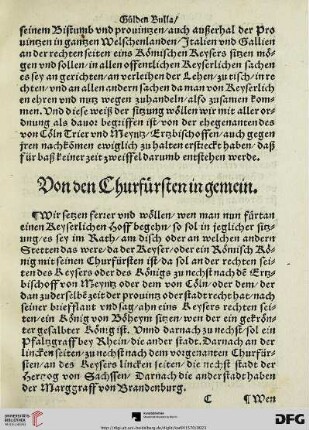 Gülden Bulla/
seinem Bistumb vnd prouintzen/auch ausserhal der Pro
uintzen in gantzen Welschenlanden/Italien vnd Gallien
an der rechten seiten eins Römischen Keysers sitzen mö
gen vnd sollen/in allen offentlichen Keyserlichen sachen
es sey an gerichten/an verleihen der Lehen/zu tisch/in rech
ten/vnd an allen andern sachen da man von Keyserlich
en ehren vnd nutz wegen zuhandeln/also zusamen kom
men. Vnd diese weiß der sitzung wöllen wir mit aller or
dnung als dauor begriffen ist/von der ehegenanten des
von Cöln Trier vnd Meyntz/Ertzbischoffen/auch gegen
jren nachkömen ewiglich zu halten erstreckt haben/daß
für baß keiner zeit zweiffel darumb entstehen werde.
Von den Churfürsten in gemein.
¶Wir setzen ferrer vnd wöllen/wen man nun fürtan
einen Keyserlichen Hoff begehn/so sol in jeglicher sitz
ung/es sey im Rath/am disch oder an welchen andern
Stetten das were/da der Keyser/oder ein Römisch Kö
nig mit seinen Churfürsten ist/da sol an der rechten sei
ten des Keysers oder des Königs zu nechst nach dē Ertz
bischoff von Meyntz oder dem von Cöln/oder dem/der
dan zuderselbē zeit der prouintz oder stadt recht hat/nach
seiner brieff lant vnd sag/ahn eins Keysers rechten sei
ten/ein König von Böheym sitzen/von der ein gekrön
ter gesalbter König ist. Vnnd darnach zu nechst sol ein
Pfaltzgraff bey Rhein/die ander stadt. Darnach an der
lincken seiten/zu nechst nach dem vorgenanten Churfür
sten/an des Keysers lincken seiten/die nechst stadt der
Hertzog von Sachssen/Darnach die anderstadt haben
der Marggraff von Brandenburg.
C ¶Wen
UNIVERSITÄTS-
BIBLIOTHEK
HEIDELBERG
DFG